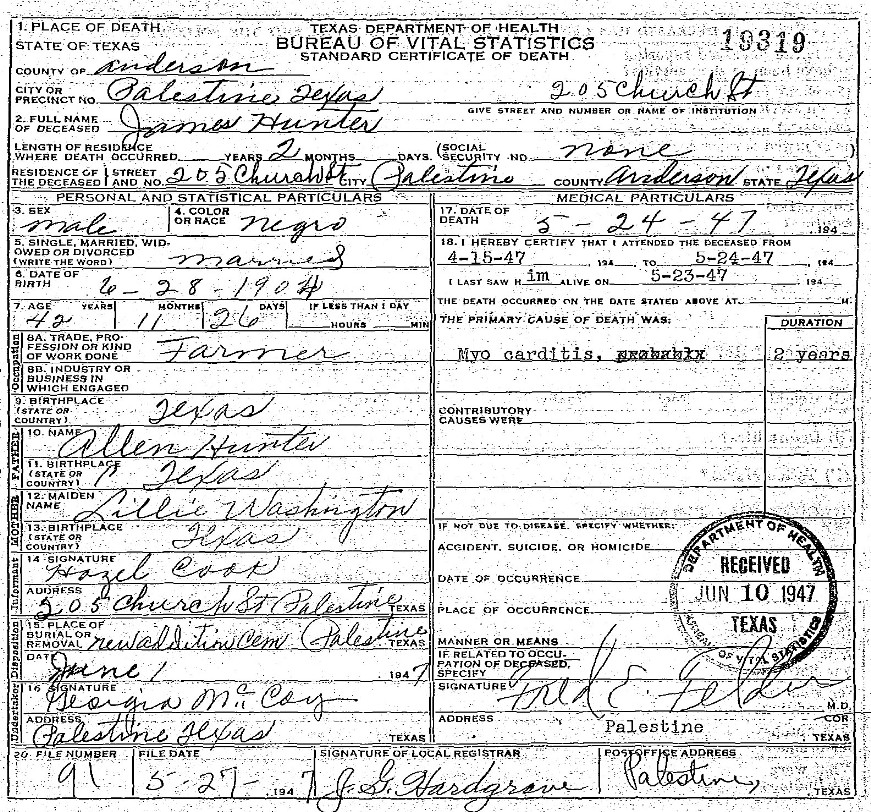 1. PLACE OF DEATH
STATE OF TEXAS
TEXAS DEPARTMENT OF HEALTH
BUREAU OF VITAL STATISTICS
STANDARD CERTIFICATE OF DEATH
19319
COUNTY OF Anderson
CITY OR PRECINCT NO. Palestine Texas
205 Church St
GIVE STREET AND NUMBER OR NAME OF INSTITUTION
2. FULL NAME OF DECEASED James Hunter
LENGTH OF RESIDENCE WHERE DEATH OCCURRED YEARS 2 MONTHS DAYS. (SOCIAL SECURITY NO. none )
RESIDENCE OF THE DECEASED STREET AND NO. 205 Church St CITY Palestine COUNTY Anderson STATE Texas
PERSONAL AND STATISTICAL PARTICULARS
3. SEX male
4. COLOR OR RACE negro
5. SINGLE, MARRIED, WIDOWED OR DIVORCED (WRITE THE WORD) married
6. DATE OF BIRTH 6-28-1904
7. AGE YEARS MONTHS DAYS IF LESS THAN 1 DAY
42 11 26 HOURS MIN
Occupation
8A. TRADE, PROFESSION OR KIND OF WORK DONE Farmer
8B. INDUSTRY OR BUSINESS IN WHICH ENGAGED
9. BIRTHPLACE (STATE OR COUNTRY) Texas
FATHER
10. NAME Allen Hunter
11. BIRTHPLACE (STATE OR COUNTRY) Texas
MOTHER
12. MAIDEN NAME Lillie Washington
13. BIRTHPLACE (STATE OR COUNTRY) Texas
Informant
14. SIGNATURE Hazel Cook
ADDRESS 205 Church St Palestine TEXAS
Disposition
15. PLACE OF BURIAL OR REMOVAL new addition cem Palestine TEXAS
DATE June 1 1947
Undertaker
16. SIGNATURE Georgia McCoy
ADDRESS Palestine Texas TEXAS
MEDICAL PARTICULARS
17. DATE OF DEATH 5-24-47 194
18. I HEREBY CERTIFY THAT I ATTENDED THE DECEASED FROM
4-15-47 194 TO 5-24-47 194
I LAST SAW H im ALIVE ON 5-23-47 194
THE DEATH OCCURRED ON THE DATE STATED ABOVE AT M.
THE PRIMARY CAUSE OF DEATH WAS: DURATION
Myo carditis, probably 2 years
CONTRIBUTORY CAUSES WERE
IF NOT DUE TO DISEASE, SPECIFY WHETHER:
ACCIDENT, SUICIDE, OR HOMICIDE
DATE OF OCCURRENCE
PLACE OF OCCURRENCE
MANNER OR MEANS
IF RELATED TO OCCUPATION OF DECEASED, SPECIFY
DEPARTMENT OF HEALTH
RECEIVED
JUN 10 1947
TEXAS
BUREAU OF VITAL STATISTICS
SIGNATURE Fred E. Felder M.D.
COR
ADDRESS Palestine TEXAS
20. FILE NUMBER 91
FILE DATE 5-27- 1947
SIGNATURE OF LOCAL REGISTRAR J. G. Hardgrave
POSTOFFICE ADDRESS Palestine, TEXAS